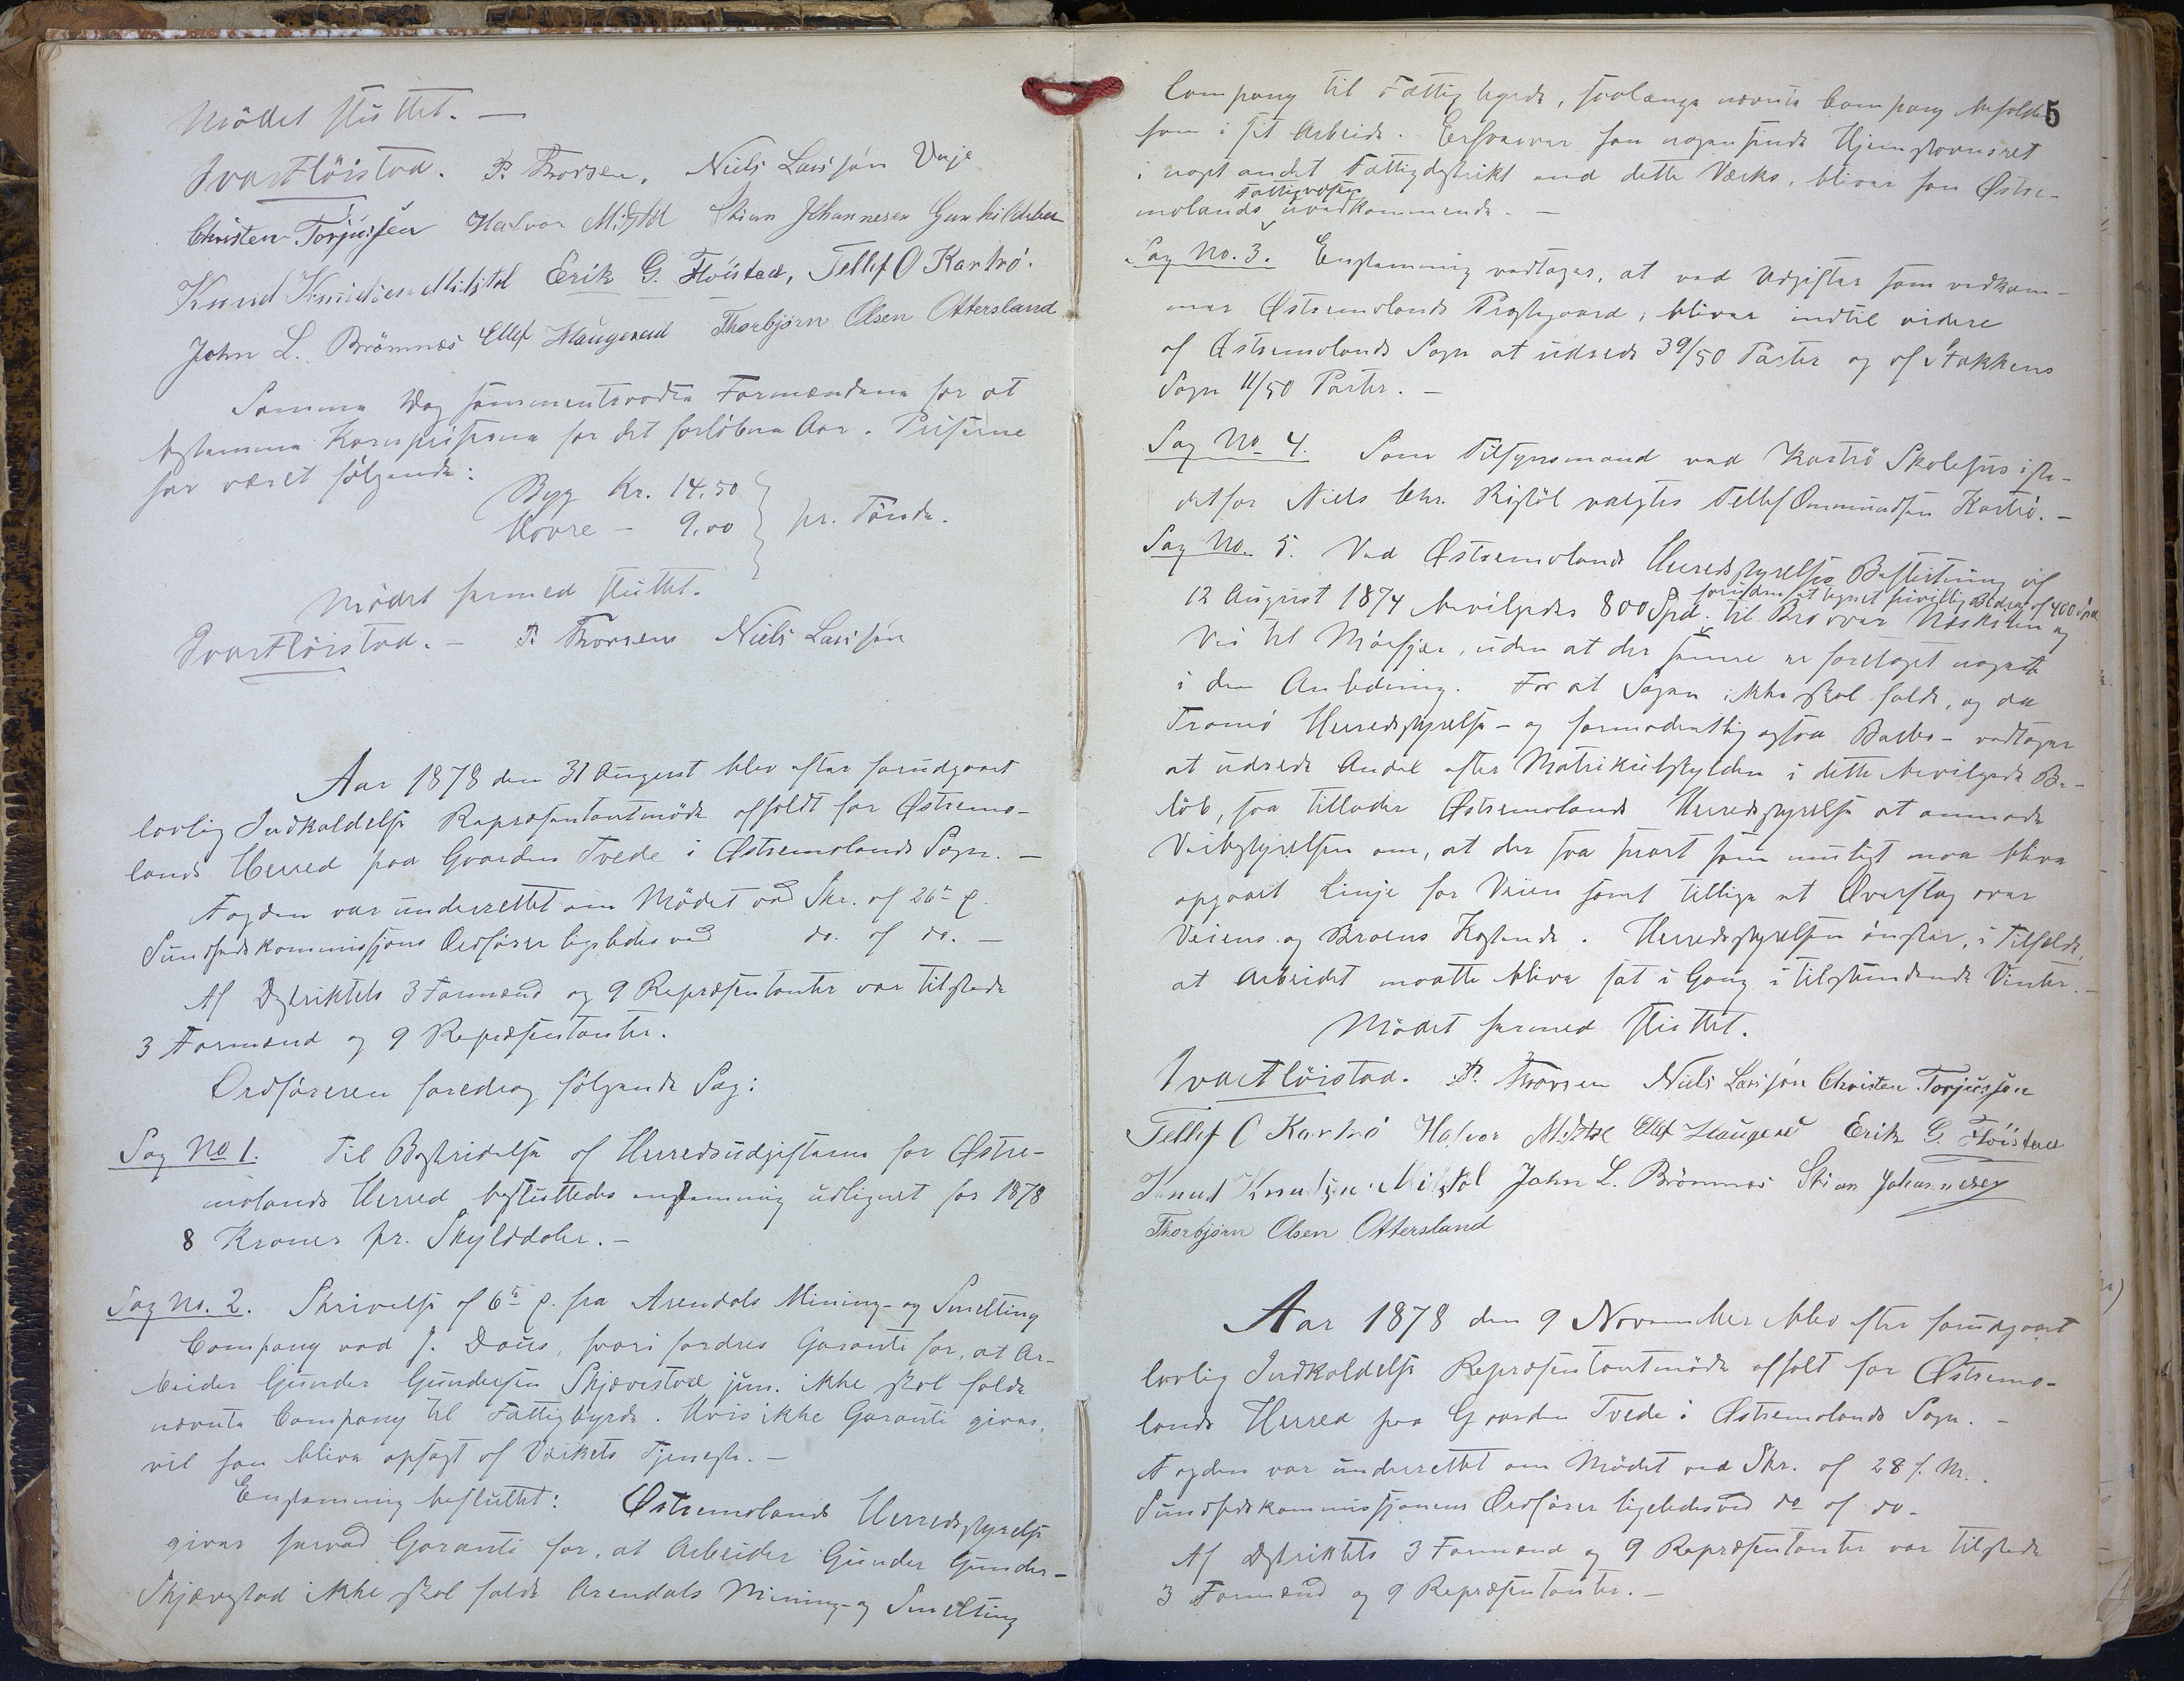 Mödet sluttet. —
Ivar Flöistad. P. Thorsen, Niels Larssön Veje
Christen Torjussen Halvor Mistdal Stian Johannesen Gunhildsboe
Knud Knudsen Mistdal Erik G. Flöistad, Tellef O Kartrö.
John L. Brömnæs Ellef Haugened Thorbjörn Olsen Ottersland
Samme Dag sammentraadte Formændene for at
bestemme Kornpriserne for det forløbne Aar. Priserne
har været følgende:
Byg Kr. 14,50
Havre – 9,00 } pr. Tønde.
Mödet hermed sluttet.
Ivar Flöistad. – P. Thorsen Niels Larssön
Aar 1878 den 31 August blev efter forudgaaet
lovlig Indkaldelse Repræsentantmöde afholdt for Østremo-
lands Herred paa Gaarden Tvede i Østremolands Sogn. —
Fogden var underrettet om Mödet ved Skr. af 26de d.
Sundhedskommissjons Ordförer ligeledes ved do. af do. —
Af Distriktets 3 Formænd og 9 Repræsentanter var tilstede
3 Formænd og 9 Repræsentanter.
Ordföreren foredrog følgende Sag:
Sag No 1. Til Bestridelse af Herredsudgifterne for Østre-
molands Herred besluttedes enstemmig udlignet for 1878
8 Kroner pr. Skylddaler. –
Sag No. 2. Skrivelse af 6te d. fra Arendals Mining- og Smelting
Company ved J. Daus, hvori fordres Garanti for, at Ar-
beider Gunder Gundersen Skjævestad jun. ikke skal falde
nævnte Company til Fattigbyrde. Hvis ikke Garanti gives,
vil han blive opsagt af Værkets Tjeneste. –
Enstemmig besluttet: Østremolands Herredsstyrelse
giver herved Garanti for, at Arbeider Gunder Gunder-
Skjævestad ikke skal falde Arendals Mining- og Smelting
5
Company til Fattigbyrde, saalænge nævnte Company beholder
ham i sit Arbeide. Erhverver han nogensinde Hjemstavnsret
i noget andet Fattigdistrikt end dette Værks, bliver han Østre-
molands Fattigvæsen uvedkommende. —
Sag No. 3. Enstemmig vedtages, at ved Udgifter som vedkom-
mer Østremolands Prestegaard, bliver indtil videre
af Østremolands Sogn at udrede 39/50 Parter og af Stokkens
Sogn 11/50 Parter. –
Sag No 4. Som Tilsynsmand ved Kartrö Skolehus iste-
detfor Niels Chr. Risdöl valgtes Tellef Ommundsen Kartrö. –
Sag No. 5. Ved Østremolands Herredsstyrelses Beslutning af
12 August 1874 bevilgedes 800 Spd. foruden et tegnet frivillig Bidrag af 400 Spd. til Bro over Næskilen og
Vei til Mörfjær, uden at der senere er foretaget noget
i den Anledning. For at Sagen ikke skal falde, og da
Tromö Herredsstyrelse – og formodentlig ogsaa Barbo – vedtager
at udrede Andel efter Matrikulskylden i dette bevilgede Be-
løb, saa tillader Østremolands Herredsstyrelse at anmode
Veibestyrelsen om, at der saa snart som muligt maa blive
opgaaet Linje for Veien samt tillige et Overslag over
Veiens og Broens Kostende. Herredsstyrelsen ønsker, i Tilfælde,
at Arbeidet maatte blive sat i Gang i tilstundende Vinter. –
Mödet hermed sluttet.
Ivar Flöistad. P. Thorsen Niels Larssön Christen Torjussen
Tellef O Kartrö Halvor Mistdal Ellef Haugened Erik G. Flöistad
Knud Knudsen Mistdal John L. Brömnæs Stian Johannesen
Thorbjörn Olsen Ottersland
Aar 1878 den 9 November blev efter forudgaaet
lovlig Indkaldelse Repræsentantmöde afholdt for Østremo-
lands Herred paa Gaarden Tvede i Østremolands Sogn. –
Fogden var underrettet om Mödet ved Skr. af 28 f. M.
Sundhedskommissjonens Ordförer ligeledes ved do af do –
Af Distriktets 3 Formænd og 9 Repræsentanter var tilstede
3 Formænd og 9 Repræsentanter. –